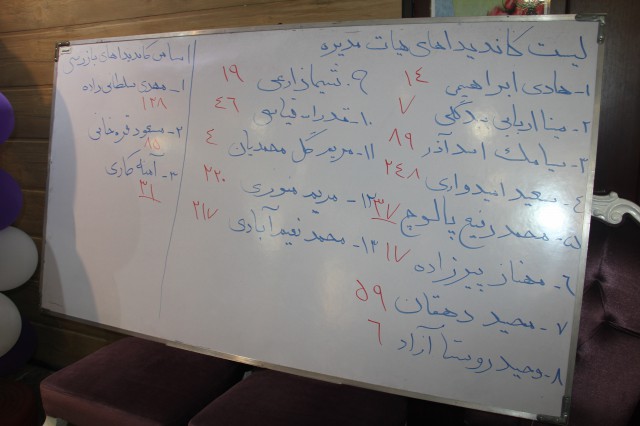 لیست کاندیداهای هیات مدیره
۱- هادی ابراهیمی ۱۴
۲- مینا اربابی بیدگلی ۷
۳- سیامک اسدآذر ۸۹
۴- سعید امیدواری ۲۴۸
۵- محمد رفیع پالوچ ۳۷
۶- مهناز پیرزاده ۱۷
۷- مجید دهقان ۵۹
۸- وحید روستا آزاد ۶
۹- شیما زارعی ۱۹
۱۰- قدرات قیاسی ۴۶
۱۱- مریم گل محمدیان ۴
۱۲- مریم منوری ۲۲۰
۱۳- محمد نعیم آبادی ۲۱۷
اسامی کاندیداهای بازرسی
۱- مهدی سلطانی زاده ۱۲۸
۲- مسعود فروخانی ۸۵
۳- آمنه کاری ۳۱